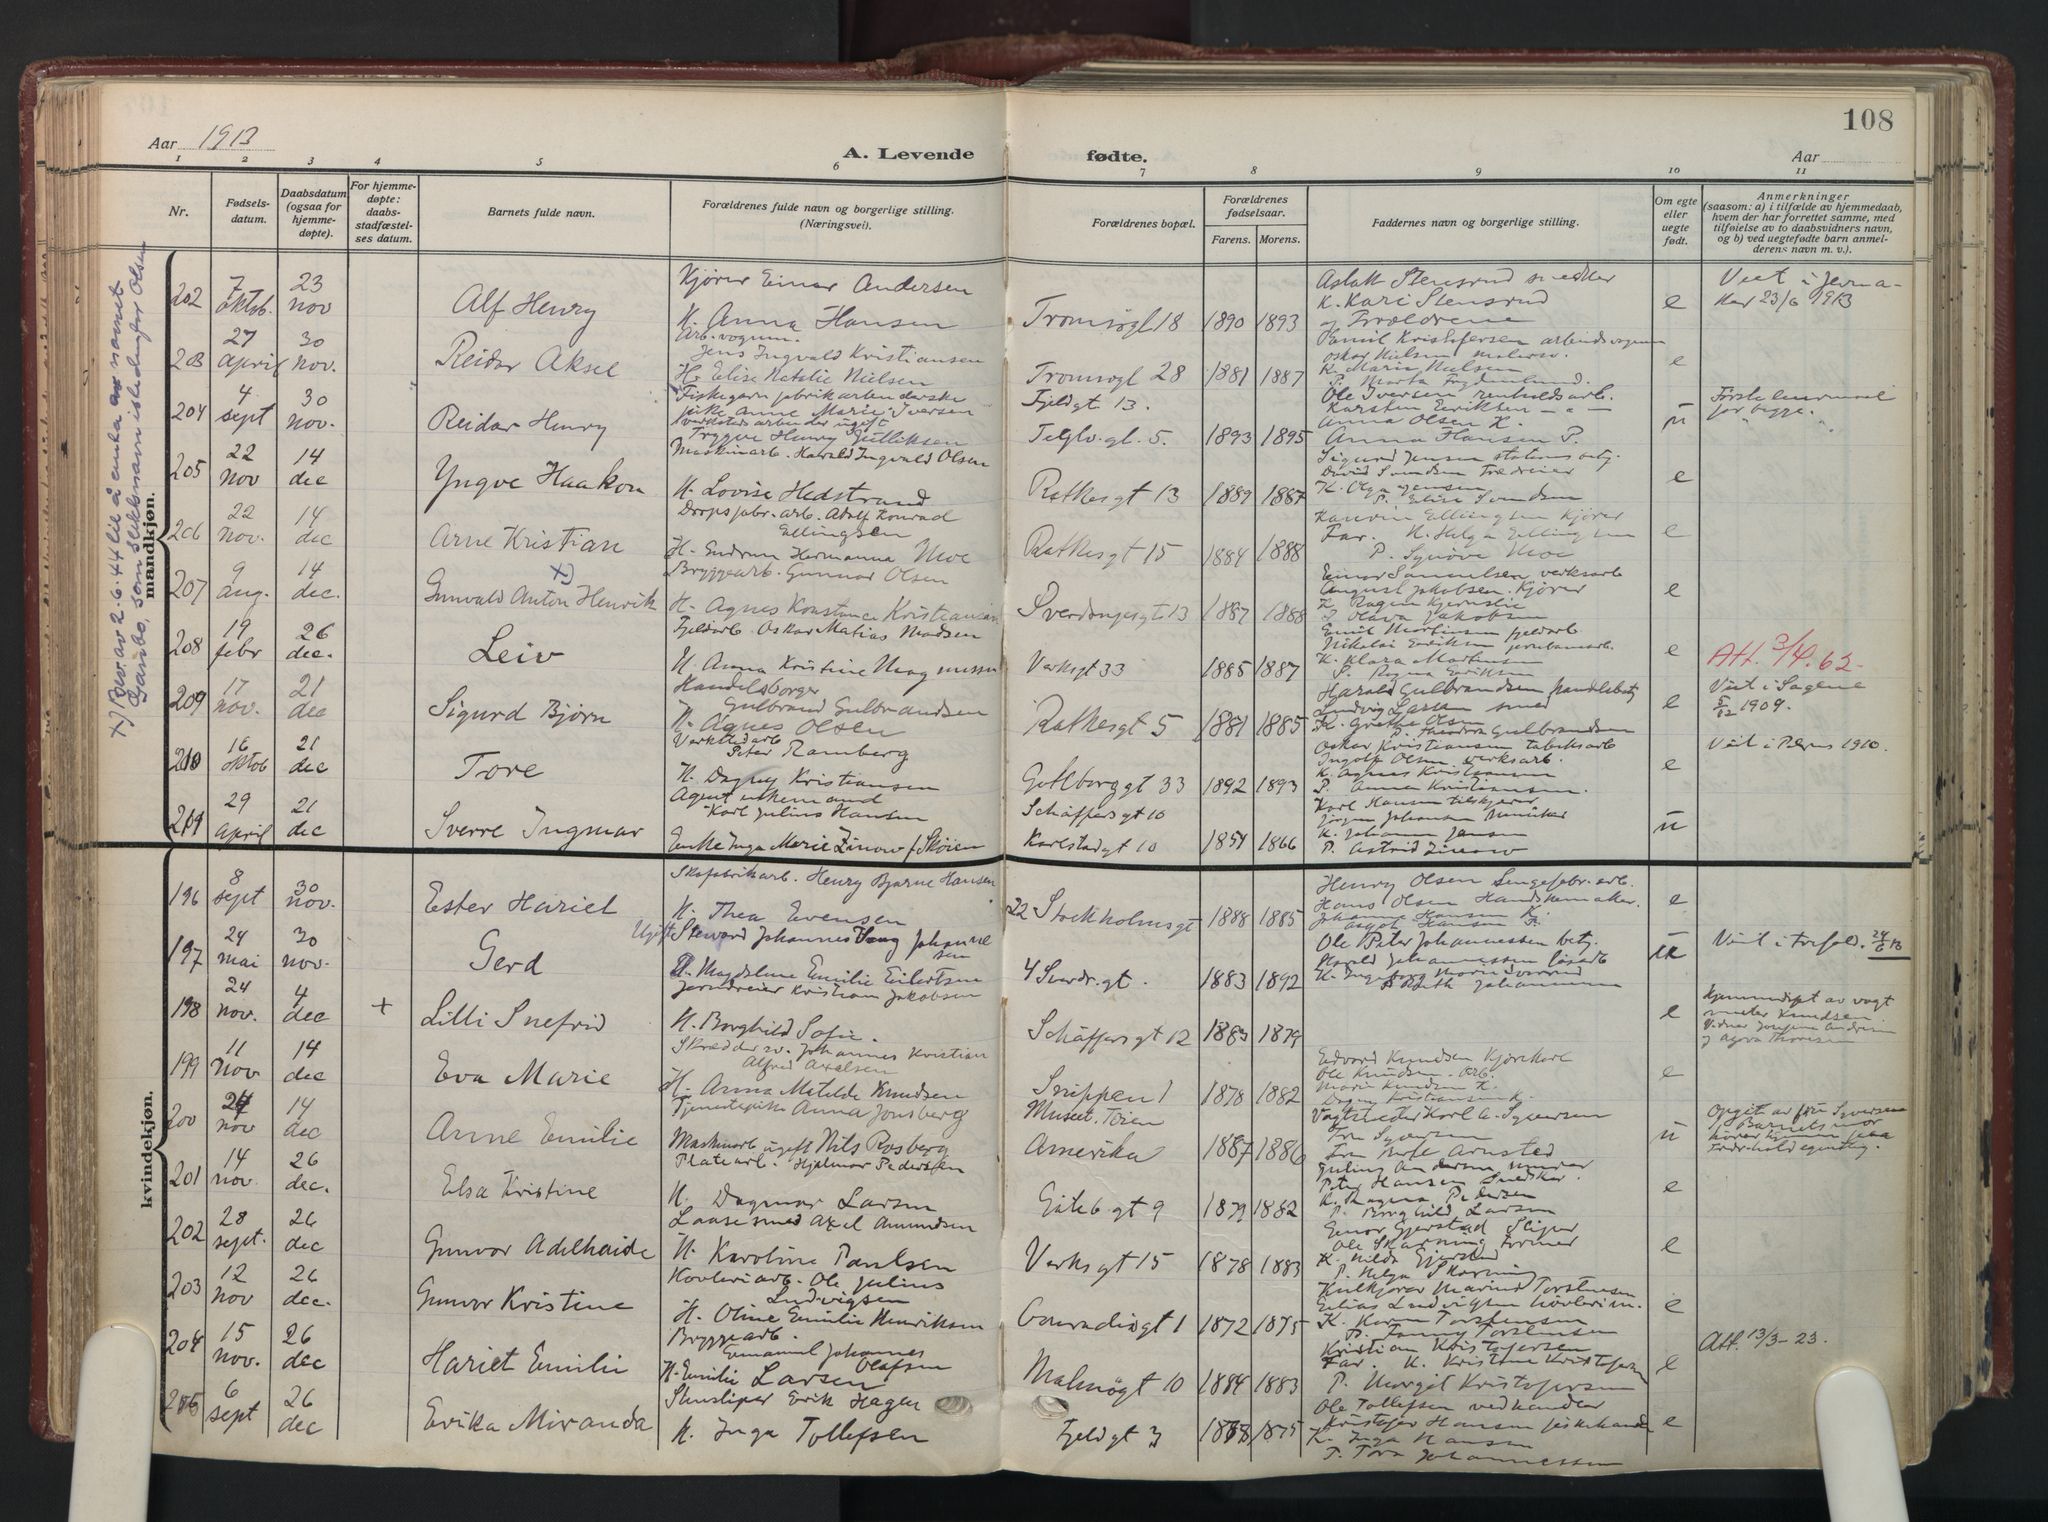 108
Aar 1913
A. Levende
fødte.
Aar
1 2 3 4 5 6 7 8 9 10 11
Nr.
Fødsels-
datum.
Daabsdatum
(ogsaa for
hjemme-
døpte).
For hjemme-
døpte:
daabs-
stadfæstel-
ses datum.
Barnets fulde navn.
Forældrenes fulde navn og borgerlige stilling.
(Næringsvei).
Forældrenes bopæl.
Forældrenes
fødselsaar.
Farens. Morens.
Faddernes navn og borgerlige stilling.
Om egte
eller
uegte
født.
Anmerkninger
(saasom: a) i tilfælde av hjemmedaab,
hvem der har forrettet samme, med
tilføielse av to daabsvidners navn,
og b) ved uegtefødte barn anmel-
derens navn m. v.).
mandkjøn.
x) Bev. av 2.6.44 til å navnet
Garbo, som slektsnavn istedenfor Olsen
202 7 oktob. 23 nov Alf Henry
Kjører Einar Andersen
H. Anna Hansen
Tromsøgt 18 1890 1893
Stensrud
K. Kari Stensrud
e
Viet i
23/6 1913
203 27 april 30 nov. Reidar Aksel
Arb. vognm.
Jens Ingvald Kristiansen
H. Elise Natalie Nielsen
Tromsøgt 28 1881 1887
Emil Kristofersen
Oskar Nielsen
K. Marie Nielsen
P. Marta
e
204 4 sept 30 nov. Reidar Henry
pike Anne Marie Iversen
ugift
Trygve Henry Gulliksen
Fjeldgt. 13.
5. 1893 1895
Ole Iversen renholdsarb.
Karsten Eriksen
Anna Olsen K.
Anna Hansen P.
u
205 22 nov 14 dec Yngve Haakon
Maskinarb. Harald Ingvald Olsen
H. Lovise Hedstrand
Ratkesgt 13 1889 1887
Sigurd Jensen
David Svendsen
K. Olga Jensen
P. Elise Svendsen
e
206 22 nov. 14 dec Arne Kristian
Dropsfabr. arb. Adolf Konrad
Ellingsen
H. Gudrun Hermanna Moe
Ratkesgt 15 1884 1888
Ellingsen Kjører
Far. K. Helga Ellingsen
P. Synøve Moe
e
207 9 aug. 14 dec. Gunvald Anton Henrik x)
Bryggearb. Gunnar Olsen
H. Agnes Konstance Kristiansen
Sverdrupsgt 13 1887 1888
Einar Samuelsen verksarb
August Jakobsen Kjører
K. Ragna
P. Olava Jakobsen
e
208 19 febr 26 dec. Leiv
Fjeldarb. Oskar Matias Madsen
H. Anna Kristine
Verksgt 33 1885 1887
Emil Martinsen fjeldarb
Nikolai Eriksen
K. Klara Martinsen
P. Ragna Eriksen
e
Att. 3/4. 62.
209 17 nov. 21 dec Sigurd Bjørn
Handelsborger
Gulbrand Gulbrandsen
H. Agnes Olsen
Ratkesgt 5 1881 1885
Harald Gulbrandsen
Ludvig Larsen smed
K. Grethe Olsen
P. Theodora Gulbrandsen
e
Viet i Sagene
1909.
210 16 oktob 21 dec Tore
Verkstedarb
Peter Ramberg
H. Dagny Kristiansen
Gøtborggt 33 1892 1893
Oskar Kristiansen
Ingolf Olsen verksarb.
K. Agnes Kristiansen
P. Anna Kristiansen.
e
Viet i 1910.
211 29 april 21 dec Sverre Ingmar
Agent enkemand
Karl Julius Hansen
Enke Inga Marie Zinow f. Skøien
Schäffersgt 10
Karlstadgt 10 1854 1866
Karl Hansen
Jørgen Johansen
K. Johanne Jensen
P. Astrid Zinow
u
kvindekjøn.
196 8 sept 30 nov. Ester Hariet
Skofabrikarb. Henry Bjarne Hansen
H. Thea Evensen
22 Stockholmsgt 1888 1885
Henry Olsen
Hans Olsen Handskemaker
Johanne Hansen K.
e
197 24 mai 30 nov. Gerd
Ugift Steward Johannes
H. Magdalene Emilie Eilertsen
4 Sverdr.gt. 1883 1892
Ole Peter Johannessen betj.
Harald Johannessen
K. Ingeborg
P. Ruth Johannessen
198 24 nov. 4 dec x Lilli Snefrid
Jerndreier Kristian Jakobsen
H. Borghild Sofie.
Schäffersgt 12 1883 1879
e
Hjemmedøpt av vagt
mester Knudsen
199 11 nov 14 dec Eva Marie
Skrædder Johannes Kristian
Alfred Axelsen
H. Anna Matilde Knudsen
Snippen 1 1878 1882
Edvard Knudsen Kjørekarl
Ole Knudsen Arb.
Marie Knudsen K.
e
200 24 nov 14 dec Anne Emilie
Tjenestepike Anna Jonsberg
Maskinarb ugift Nils Rosberg
Museet Tøien
Amerika 1887 1886
Vagtmester Karl A. Syversen
Fru Syversen
u
Opgit av fru Syversen
Barnets mor
201 14 nov. 26 dec. Elsa Kristine
Platearb. Hjalmar Pedersen
H. Dagmar Larsen
Gøteb.gt 9 1879 1882
Juling Andersen murer
Peter Hansen Snedker.
K. Ragna Pedersen
P. Borghild Larsen
e
202 28 sept. 26 dec Gunvor Adelhaide
Laasesmed Axel Amundsen
H. Karoline Paulsen
Verksgt 15 1878 1883
Einar Gjerstad Sliper
Ole Skarning Former
K. Hilda Gjerstad
P. Helga Skarning
e
203 12 nov 26 dec. Gunvor Kristine
Høvleriarb. Ole Julius
Ludvigsen
H. Oline Emilie Henriksen
Conradisgt 1 1872 1875
Marius Torstensen
Elias Ludvigsen
K. Karen Torstensen
P. Fanny Torstensen
e
204 15 nov. 26 dec Hariet Emilie
Bryggearb.
Emanuel Johannes
Olafsen
H. Emilie Larsen
Malmøgt 10 1884 1883
Kristian Kristofersen
Far. K. Kristine Kristofersen
P. Margit Kristofersen
e
Att. 13/3-23.
205 6 sept 26 dec Erika Miranda
Stensliper Erik Hagen
H. Inga Tollefsen
Fjeldgt 3 1873 1875
Ole Tollefsen vedhandler
Kristofer Hansen fiskehandl
K. Inga Hansen
P. Tora Johannessen
e